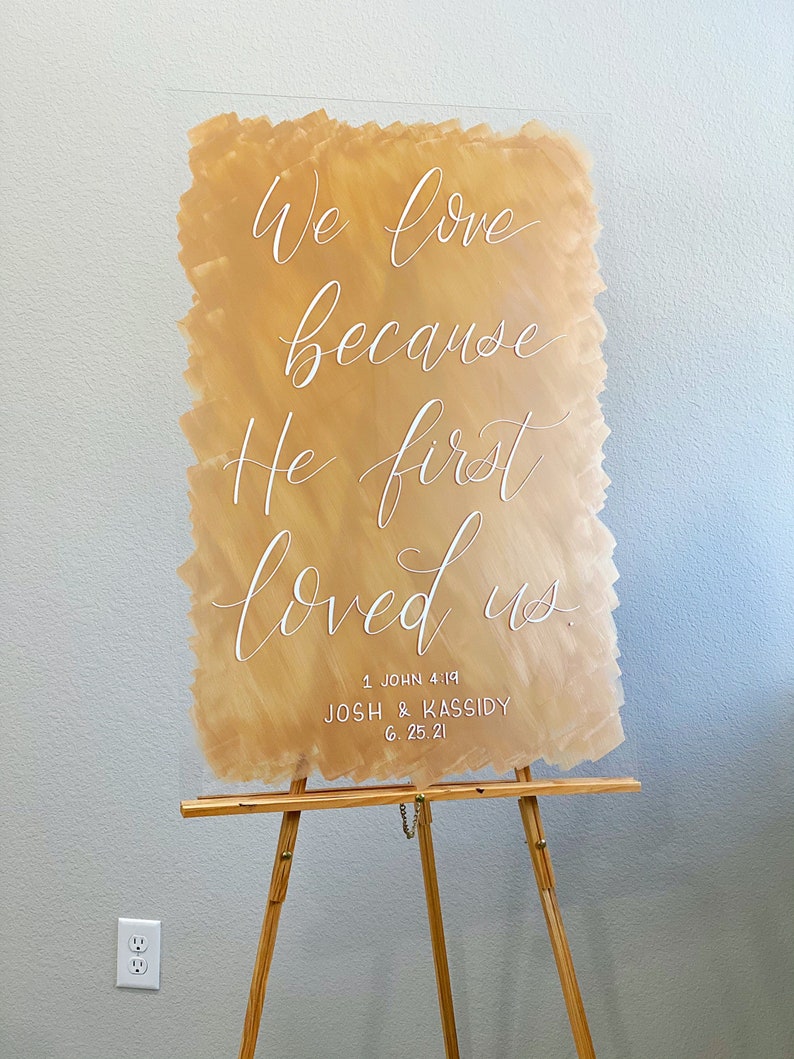 We love
because
He first
loved us.
1 JOHN 4:19
JOSH & KASSIDY
6.25.21